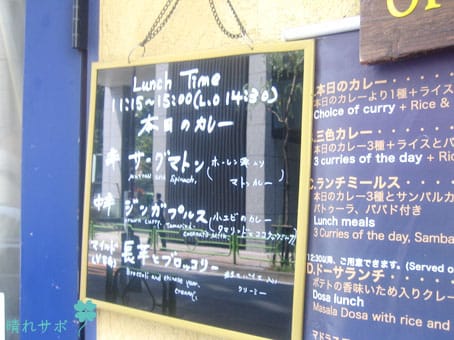 Lunch Time
11:15~15:00(L.O 14:30)
本日のカレー
辛 サグマトン (ホーレン草入り マトンカレー
mutton and Spinach,
中辛 ジンガプルス (小エビのカレー
タマリンドとココナッツ
マイルド 長芋とブロッコリー
Broccoli and chinese yam.
クリーミー
creamy.
本日のカレー
本日のカレーより1種+ライス
Choice of curry + Rice &
三色カレー
本日のカレー3種+ライスとパ
3 curries of the day + Ric
C.ランチミールス
本日のカレー3種とサンバルカ
パトゥーラ、パパド付き
Lunch meals
3 Curries of the day, Samba
12:30以降、ご用意できます。(Served o
D.ドーサランチ
ポテトの香味いため入りクレー
Dosa lunch
Masala Dosa with rice and
マドラス
晴れサポ